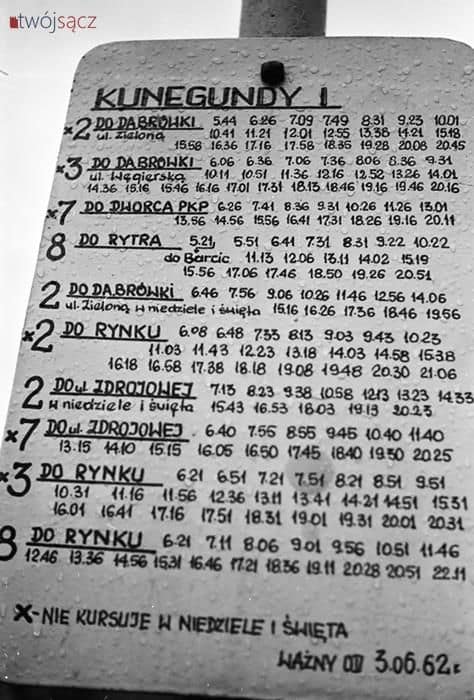 twójsącz
KUNEGUNDY I
x2 DO DĄBRÓWKI 5.44 6.26 7.09 7.49 8.31 9.23 10.01
ul. Zieloną 10.41 11.21 12.01 12.55 13.38 14.21 15.18
15.58 16.36 17.16 17.58 18.35 19.28 20.08 20.45
x3 DO DĄBRÓWKI 6.06 6.36 7.06 7.36 8.06 8.36 9.31
ul. Węgierską 10.11 10.51 11.36 12.16 12.52 13.26 14.01
14.36 15.16 15.46 16.16 17.01 17.31 18.13 18.46 19.16 19.46 20.16
x7 DO DWORCA PKP 6.26 7.41 8.36 9.31 10.26 11.26 13.01
13.56 14.56 15.56 16.41 17.31 18.26 19.16 20.11
8 DO RYTRA 5.21, 5.51 6.41 7.31 8.31 9.22 10.22
do Barcic 11.13 12.06 13.11 14.02 15.19
15.56 17.06 17.46 18.50 19.26 20.51
2 DO DĄBRÓWKI 6.46 7.56 9.06 10.26 11.46 12.56 14.06
ul. Zieloną w niedziele i święta 15.16 16.26 17.36 18.46 19.56
x2 DO RYNKU 6.08 6.48 7.33 8.13 9.03 9.43 10.23
11.03 11.43 12.23 13.18 14.03 14.58 15.38
16.18 16.58 17.38 18.18 19.08 19.48 20.30 21.06
2 DO ul. ZDROJOWEJ 7.13 8.23 9.38 10.58 12.13 13.23 14.33
w niedziele i święta 15.43 16.53 18.03 19.13 20.23
x7 DO ul. ZDROJOWEJ 6.40 7.55 8.55 9.45 10.40 11.40
13.15 14.10 15.15 16.05 16.50 17.45 18.40 19.30 20.25
x3 DO RYNKU 6.21 6.51 7.21 7.51 8.21 8.51 9.51
10.31 11.16 11.56 12.36 13.11 13.41 14.21 14.51 15.31
16.01 16.41 17.16 17.51 18.31 19.01 19.31 20.01 20.31
8 DO RYNKU 6.21 7.11 8.06 9.01 9.56 10.51 11.46
12.46 13.36 14.56 15.31 16.46 17.21 18.36 19.11 20.28 20.51 22.11
X-NIE KURSUJE W NIEDZIELE I ŚWIĘTA
WAŻNY OD 3.06.62r.